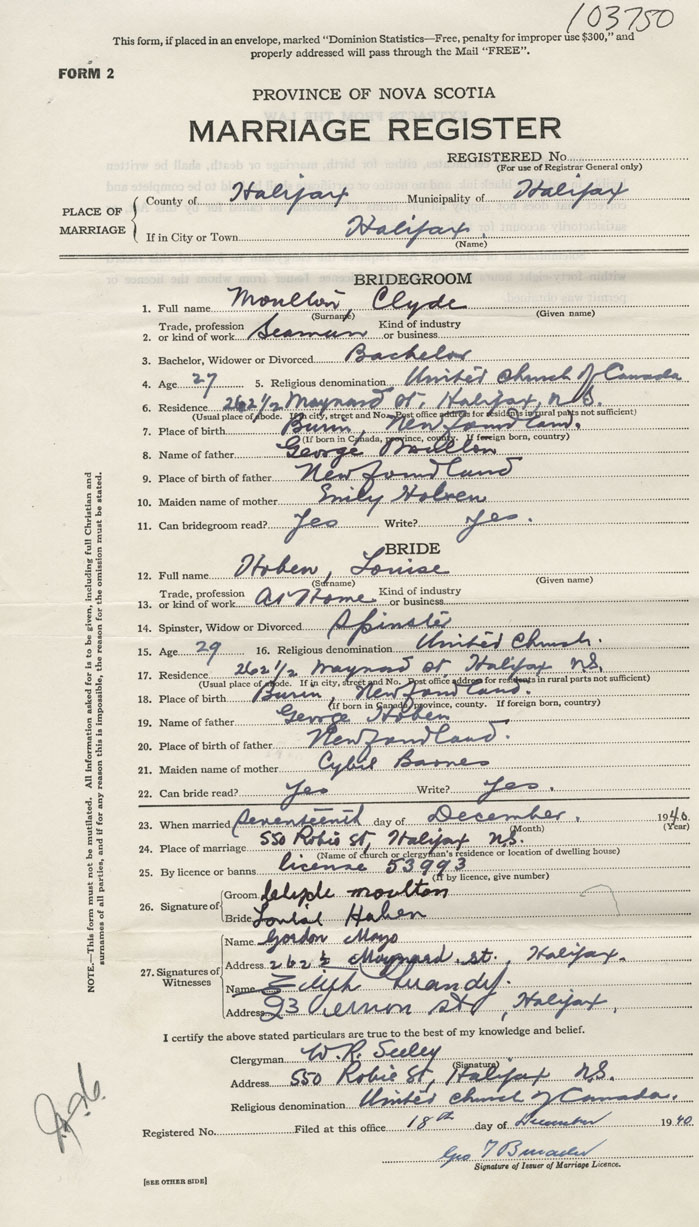 103750
This form, if placed in an envelope, marked "Dominion Statistics—Free, penalty for improper use $300," and
properly addressed will pass through the Mail "FREE".
FORM 2
PROVINCE OF NOVA SCOTIA
MARRIAGE REGISTER
REGISTERED No.
(For use of Registrar General only)
PLACE OF MARRIAGE
County of Halifax Municipality of Halifax
If in City or Town Halifax.
(Name)
BRIDEGROOM
1. Full name Moulton, Clyde
(Surname) (Given name)
2. Trade, profession or kind of work Seaman Kind of industry or business
3. Bachelor, Widower or Divorced Bachelor
4. Age 27 5. Religious denomination United Church of Canada
6. Residence 262 1/2 Maynard St. Halifax, N.S.
(Usual place of abode. If in city, street and No. Post office address for residents in rural parts not sufficient)
7. Place of birth Burin, Newfoundland.
(If born in Canada, province, county. If foreign born, country)
8. Name of father George Moulton
9. Place of birth of father Newfoundland
10. Maiden name of mother Emily
11. Can bridegroom read? Yes Write? Yes.
BRIDE
12. Full name Hoben, Louise
(Surname) (Given name)
13. Trade, profession or kind of work At Home Kind of industry or business
14. Spinster, Widow or Divorced Spinster
15. Age 29 16. Religious denomination United Church.
17. Residence 262 1/2 Maynard St Halifax N.S.
(Usual place of abode. If in city, street and No. Post office address for residents in rural parts not sufficient)
18. Place of birth Burin, Newfoundland.
(If born in Canada, province, county. If foreign born, country)
19. Name of father George Hoben
20. Place of birth of father Newfoundland.
21. Maiden name of mother Cybil Barnes
22. Can bride read? Yes Write? Yes.
23. When married Seventeenth day of December. 1940.
(Month) (Year)
24. Place of marriage 550 Robie St, Halifax N.S.
(Name of church or clergyman's residence or location of dwelling house)
25. By licence or banns license 53993
(If by licence, give number)
26. Signature of
Groom moulton
Bride Haben
27. Signatures of Witnesses
Name Gordon Mayo
Address 262 1/2 Maynard. St. Halifax.
Name
Address 23 Vernon St, Halifax,
I certify the above stated particulars are true to the best of my knowledge and belief.
Clergyman W. R. Seeley
(Signature)
Address 550 Robie St, Halifax N.S.
Religious denomination United Church of Canada.
Registered No. Filed at this office 18th day of December 1940
Geo
Signature of Issuer of Marriage Licence.
[SEE OTHER SIDE]
NOTE.—This form must not be mutilated. All information asked for is to be given, including full Christian and
surnames of all parties, and if for any reason this is impossible, the reason for the omission must be stated.